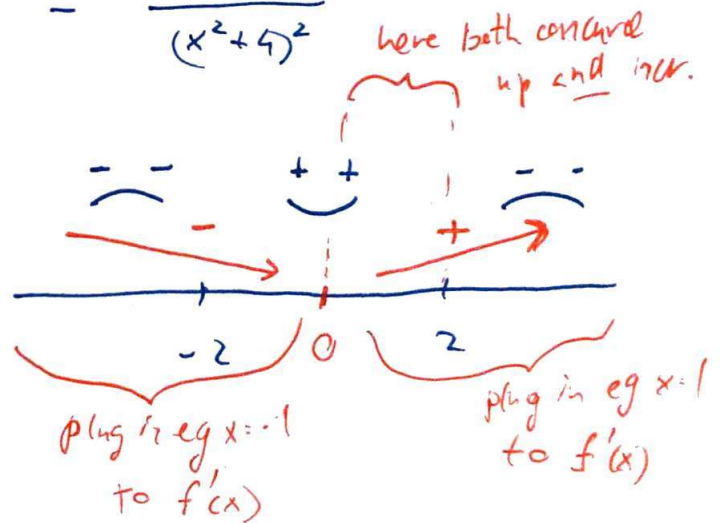 - (x²+4)²
here both concave
up and incr.
- - + + - -
- +
-2 0 2
plug in eg x=-1
to f'(x)
plug in eg x=1
to f'(x)